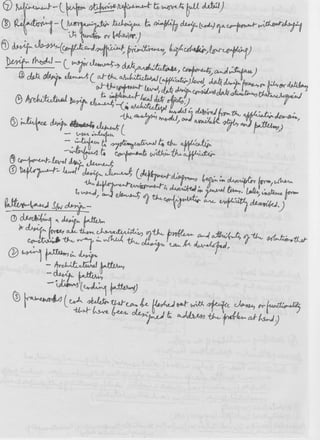 ⑦ refinement - (perform stepwise refinement to move to full detail)
⑧ Refactoring - (reorganization technique to simplify design (code) of a component without changing
its function or behavior.)
⑨ design classes (complete and sufficient, primitiveness, high cohesion, low coupling)
Design Model - (major element → data, architecture, components, and interface)
① data design element (at the architectural (application) level, data design focuses on files or databases
at the component level, data design considers data structures that are required
to implement local data objects.)
② Architectural design element - (architectural model is derived from the application domain,
the analysis model, and available styles and patterns)
③ interface design element (
- user interface
- interface to system external to the application
- interfaces to components within the application
④ component-level design element
⑤ Deployment-level design elements (deployment diagrams begin in descriptor form, where
the deployment environment is described in general terms. Later, instance form
is used, and elements of the configuration are explicitly described.)
Pattern-based S/w design -
① describing a design pattern
* design forces are those characteristics of the problem and attributes of the solution that
constrain the way in which the design can be developed.
② using patterns in design
- Architectural patterns
- design patterns
- idioms (coding patterns)
③ frameworks (code skeleton that can be fleshed out with specific classes or functionality
that have been designed to address the problem at hand.)